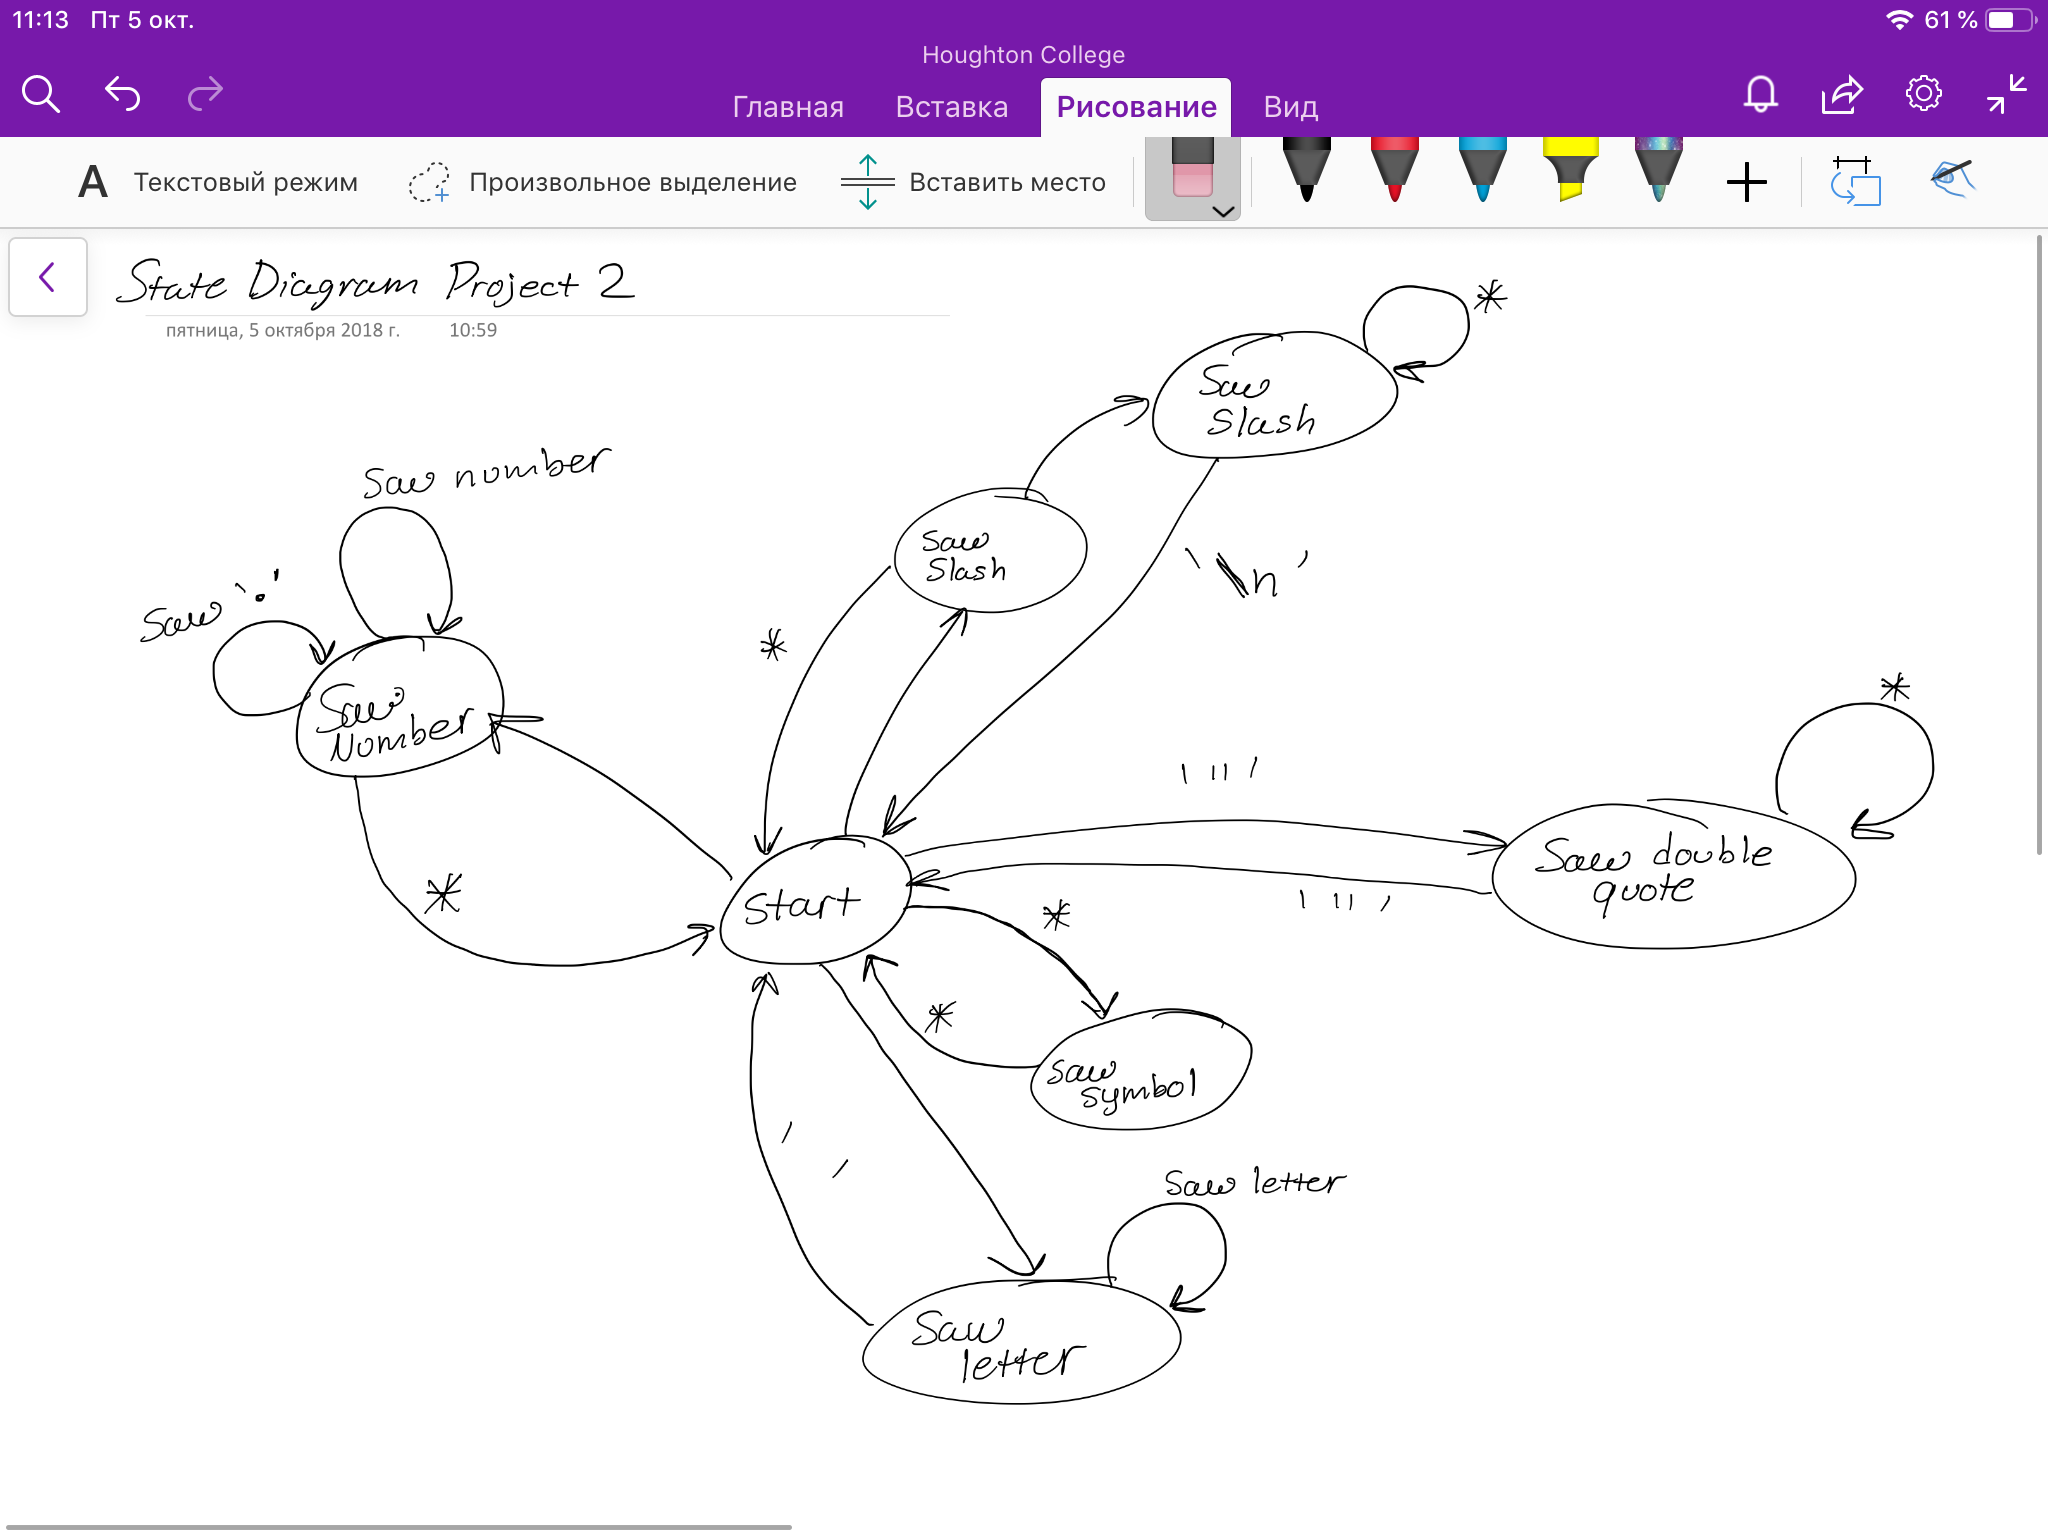 11:13 Пт 5 окт.
61 %
Houghton College
Главная Вставка Рисование Вид
A Текстовый режим Произвольное выделение Вставить место
State Diagram Project 2
пятница, 5 октября 2018 г. 10:59
*
Saw
Slash
Saw number
Saw
Slash
'\n'
Saw '.'
*
Saw
Number
*
'"'
Saw double
quote
*
Start
'"'
*
*
Saw
symbol
' '
Saw letter
Saw
letter